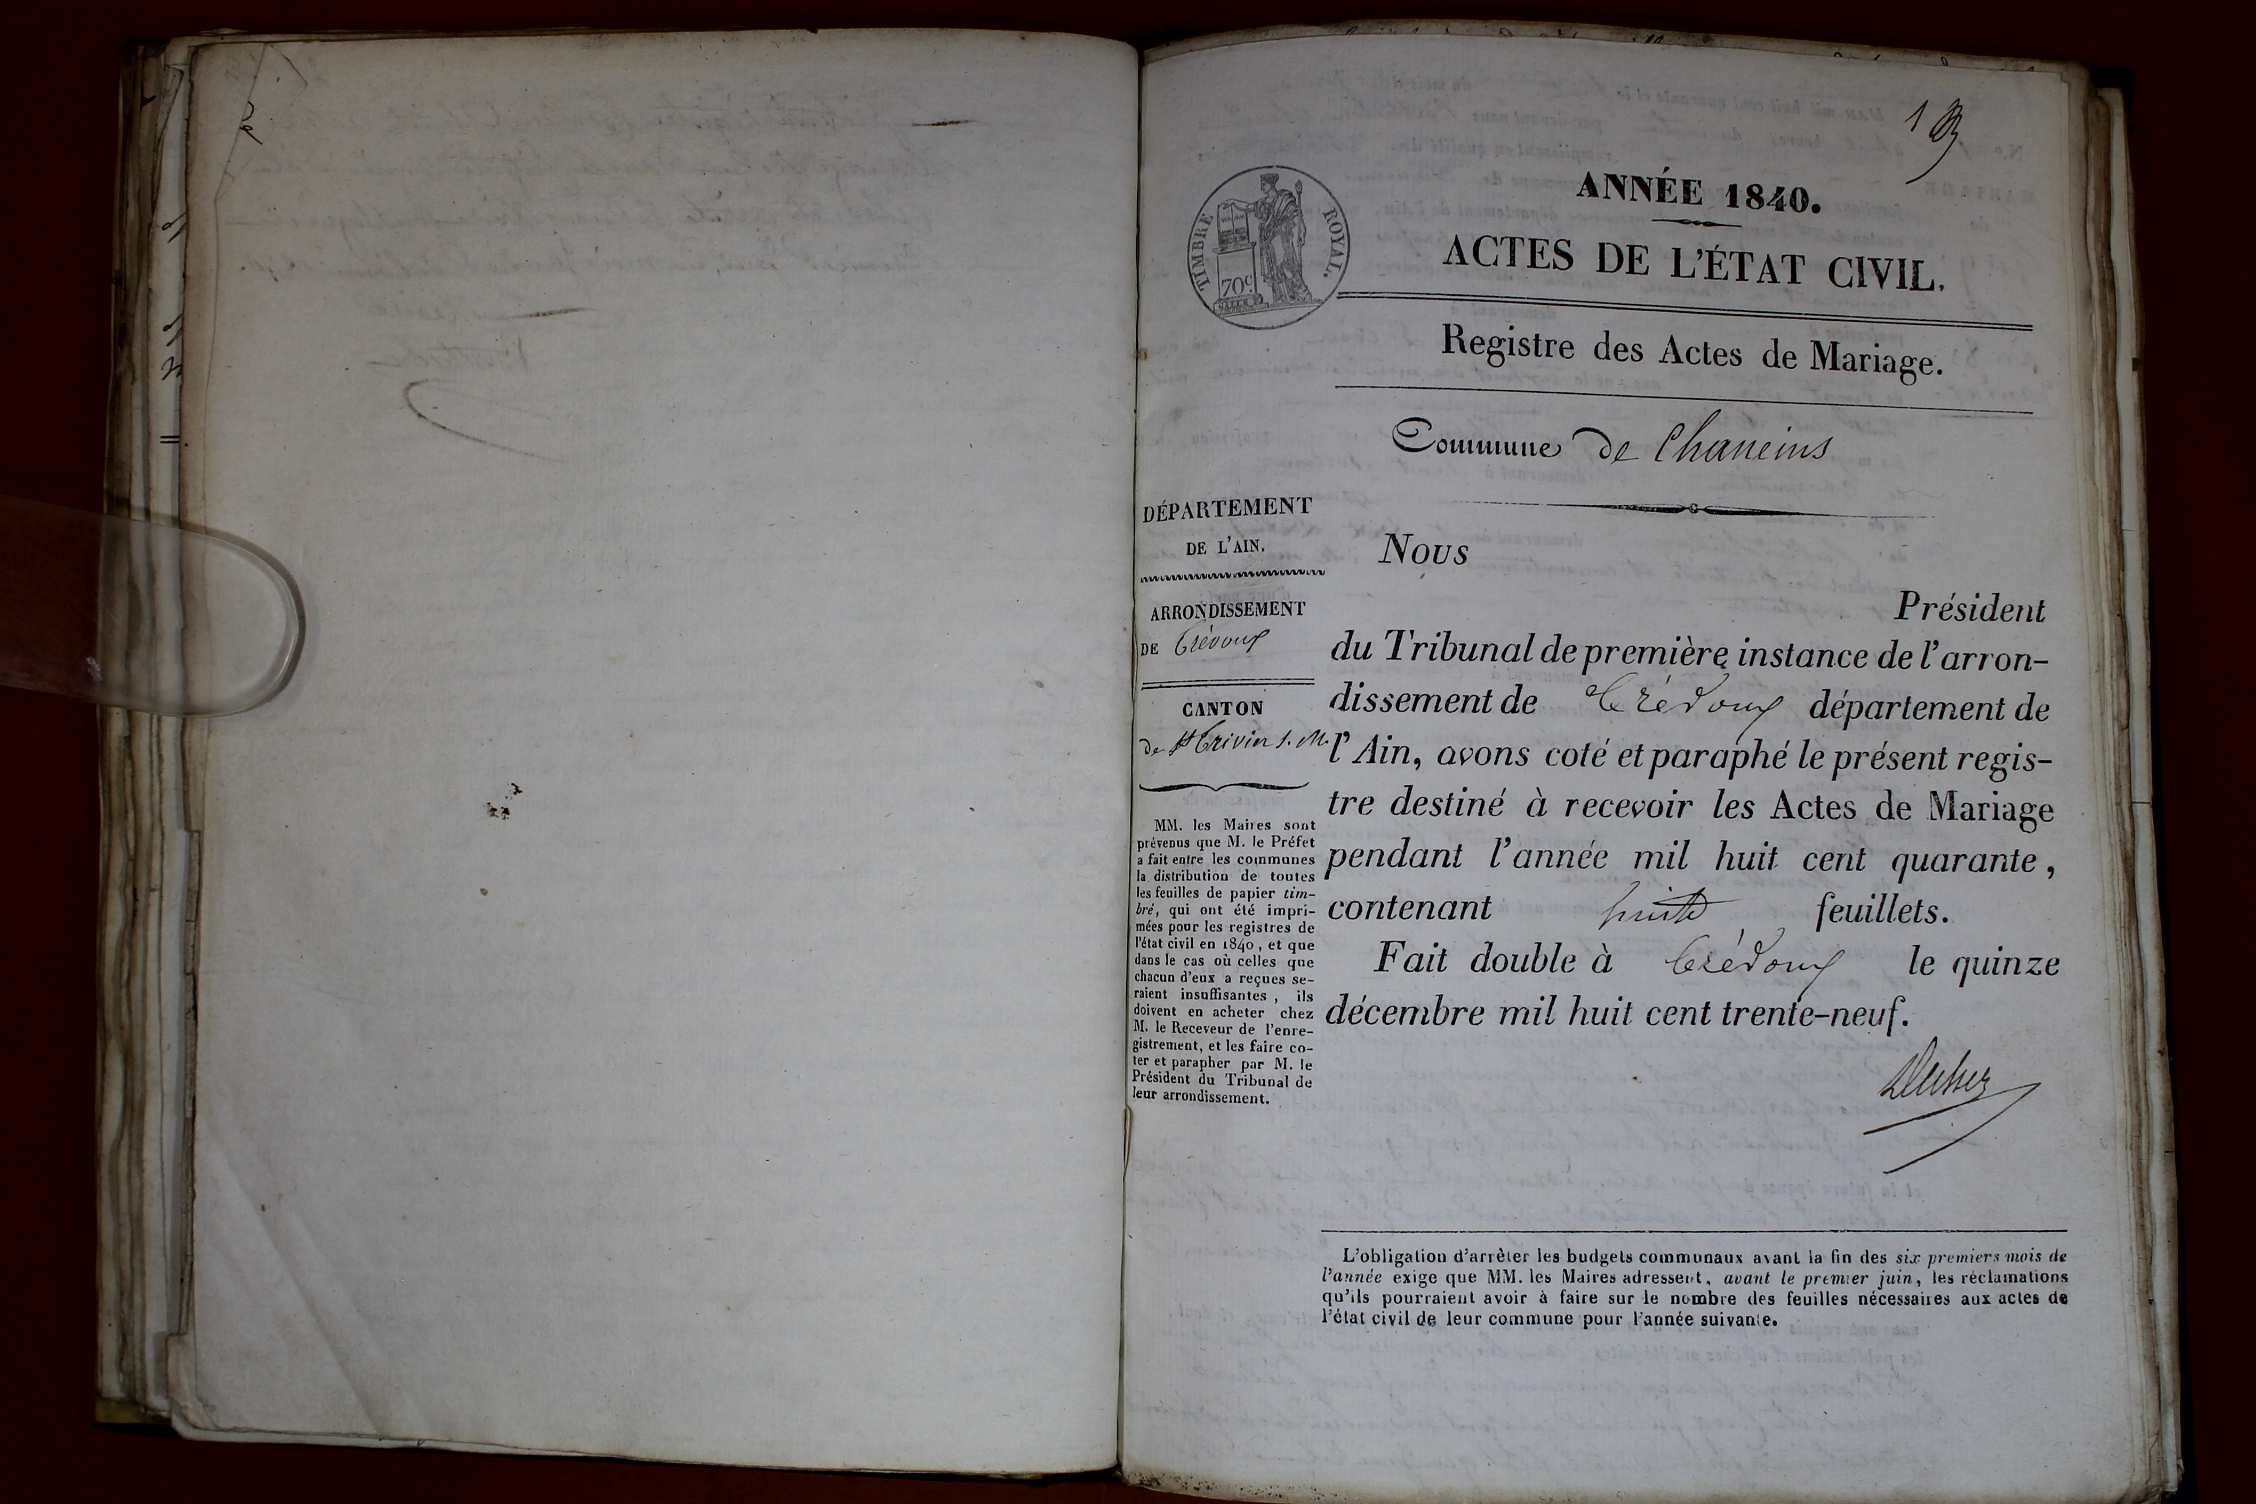 1
ANNÉE 1840.
ACTES DE L'ÉTAT CIVIL.
TIMBRE ROYAL.
70c
Registre des Actes de Mariage.
Commune de Chaneins
DÉPARTEMENT
DE L'AIN.
ARRONDISSEMENT
DE Trévoux
CANTON
de St Trivier s. M.
MM. les Maires sont
prévenus que M. le Préfet
a fait entre les communes
la distribution de toutes
les feuilles de papier tim-
bré, qui ont été impri-
mées pour les registres de
l'état civil en 1840, et que
dans le cas où celles que
chacun d'eux a reçues se-
raient insuffisantes, ils
doivent en acheter chez
M. le Receveur de l'enre-
gistrement, et les faire co-
ter et parapher par M. le
Président du Tribunal de
leur arrondissement.
Nous
Président
du Tribunal de première instance de l'arron-
dissement de Trévoux département de
l'Ain, avons coté et paraphé le présent regis-
tre destiné à recevoir les Actes de Mariage
pendant l'année mil huit cent quarante,
contenant huit feuillets.
Fait double à Trévoux le quinze
décembre mil huit cent trente-neuf.
L'obligation d'arrêter les budgets communaux avant la fin des six premiers mois de
l'année exige que MM. les Maires adressent, avant le premier juin, les réclamations
qu'ils pourraient avoir à faire sur le nombre des feuilles nécessaires aux actes de
l'état civil de leur commune pour l'année suivante.